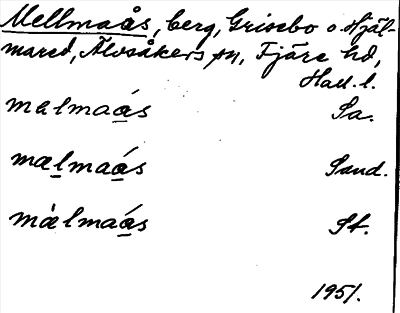 Mellmaås, berg, Grisebo o. Hjäl-
mared, Älvsåkers sn, Fjäre hd,
Hall. l.
mælmaás Sa.
mælmaás Sand.
mǽlmaás St.
1951.